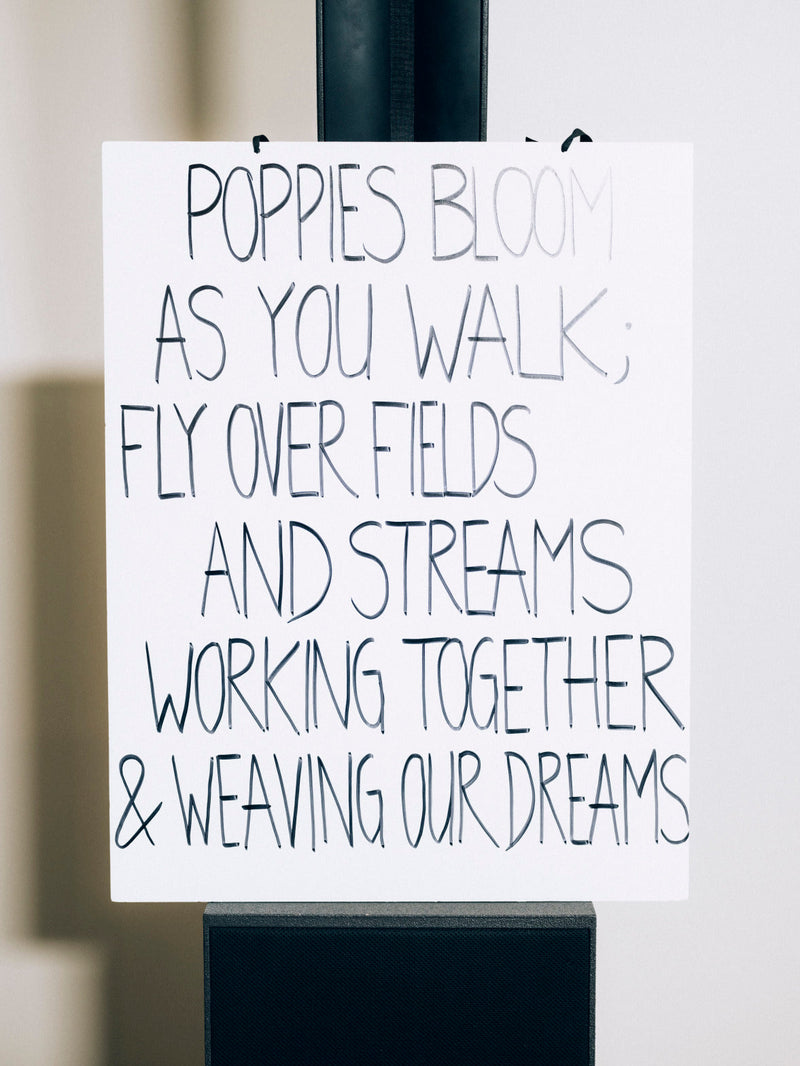 POPPIES BLOOM
AS YOU WALK;
FLY OVER FIELDS
AND STREAMS
WORKING TOGETHER
& WEAVING OUR DREAMS